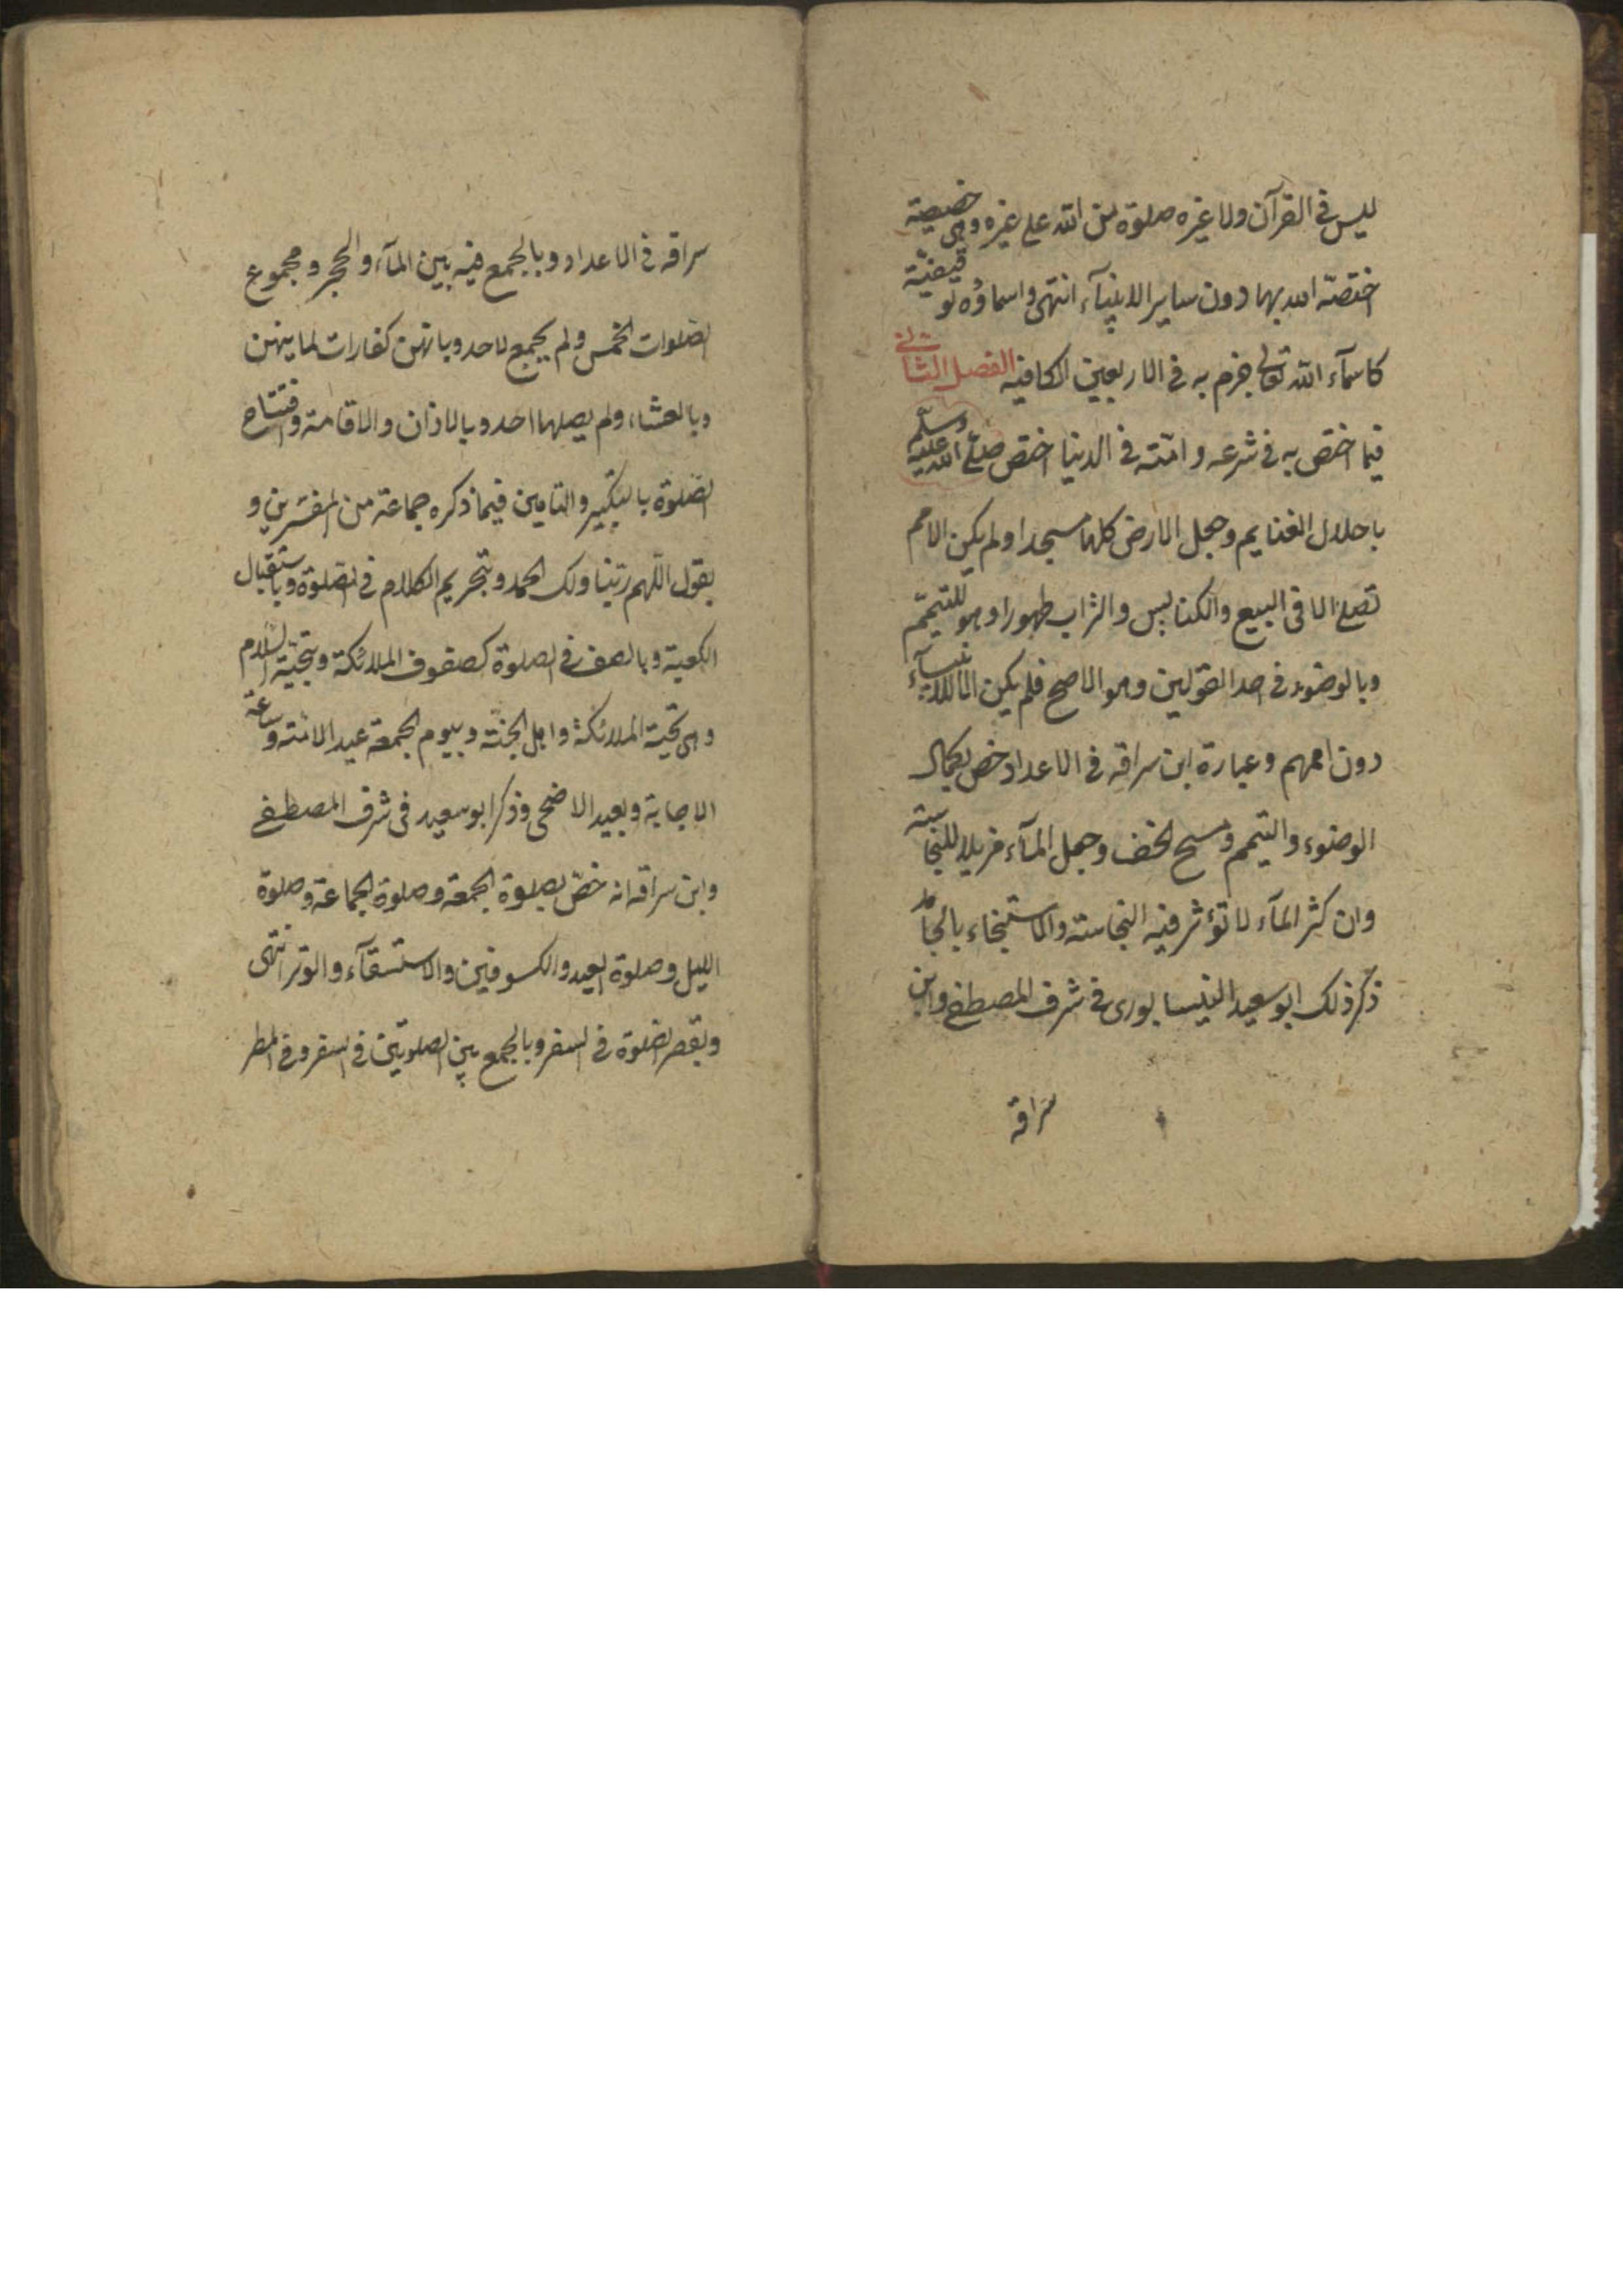 ليس في القرآن ولا غيره صلوة من الله على غيره وهى خصيصة
اختصه الله بها دون ساير الانبيآء انتهى واسماؤه توقيفية
كاسمآء الله تعالى جزم به في الاربعين الكافيه الفصل الثانى
فيما اختص به في شرعه وامته في الدنيا اختص صلى الله عليه وسلم
باحلال الغنايم وجعل الارض كلها مسجدا ولم يكن الامم
تصلى الا في البيع والكنايس والتراب طهورا وهو للتيمم
وبالوضوء في احد القولين وهو الاصح فلم يكن الا للانبيآء
دون اممهم وعبارة ابن سراقه في الاعداد خص بكمال
الوضوء والتيمم ومسح الخف وجعل المآء مزيلا للنجاسة
وان كثر المآء لا تؤثر فيه النجاسة والاستنجاء بالجامد
ذكر ذلك ابو سعيد النيسابورى في شرف المصطفى وابن
سراقه
سراقه في الاعداد وبالجمع فيه بين المآء والحجر ومجموع
الصلوات الخمس ولم يجمع لاحد وبانهن كفارات لما بينهن
وبالعشاء ولم يصلها احد وبالاذان والاقامة وافتتاح
الصلوة بالتكبير والتامين فيما ذكره جماعة من المفسرين و
بقول اللهم ربنا ولك الحمد وبتحريم الكلام في الصلوة وباستقبال
الكعبة وبالصف في الصلوة كصفوف الملائكة وبتحية السلام
وهى تحية الملائكة واهل الجنة وبيوم الجمعة عيد الامته وساعة
الاجابة وبعيد الاضحى وذكر ابو سعيد فى شرف المصطفى
وابن سراقه انه خص بصلوة الجمعة وصلوة الجماعة وصلوة
الليل وصلوة العيد والكسوفين والاستسقآء والوتر انتهى
وبقصر الصلوة في السفر وبالجمع بين الصلوتين في السفر وفي المطر